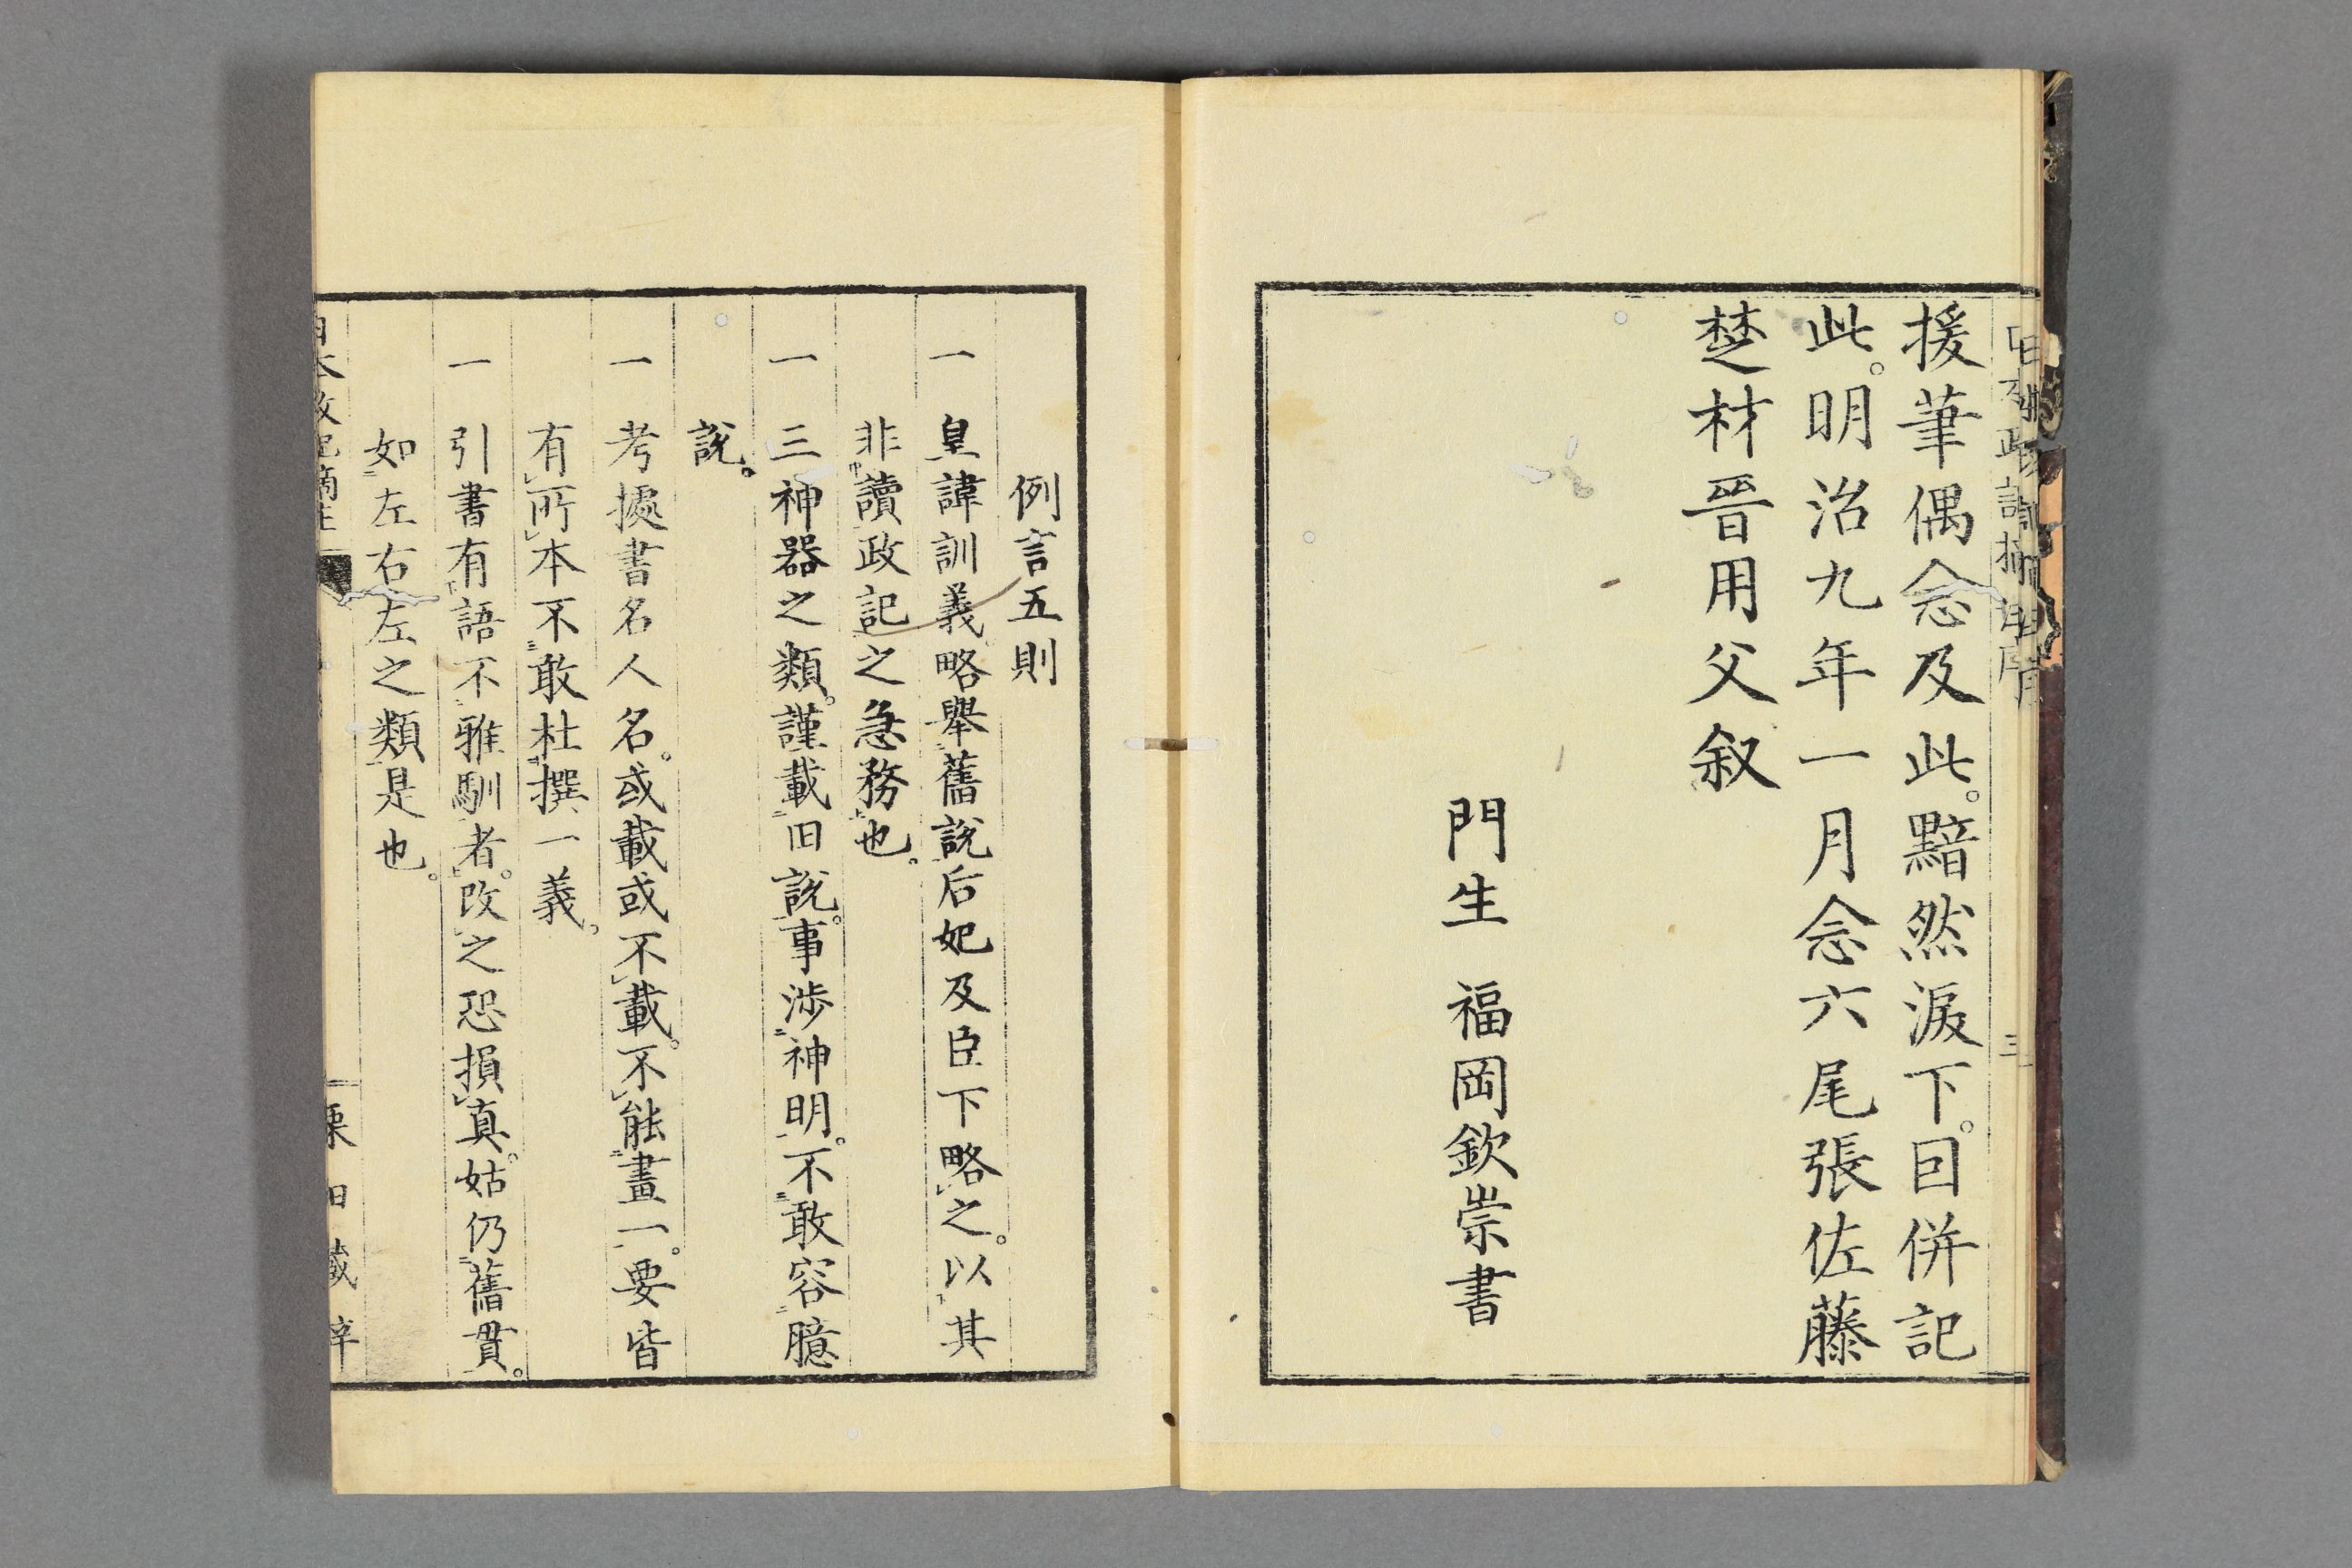 援筆偶念及此。黯然淚下。囙併記
此。明治九年一月念六尾張佐藤
楚材晉用父叙
門生 福岡欽崇書
三
例言五則
一 皇諱訓義略舉舊說后妃及臣下略之。以其
非讀政記之急務也。
一 三神器之類。謹載旧說。事涉神明。不敢容臆
說。
一 考據書名人名。或載或不載。不能畫一。要皆
有所本不敢杜撰一義。
一 引書有語不雅馴者。改之恐損真。姑仍舊貫。
如左右左之類是也。